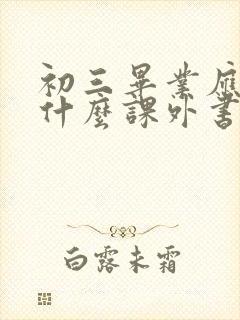 初三畢業應
什麼課外書
白露未霜